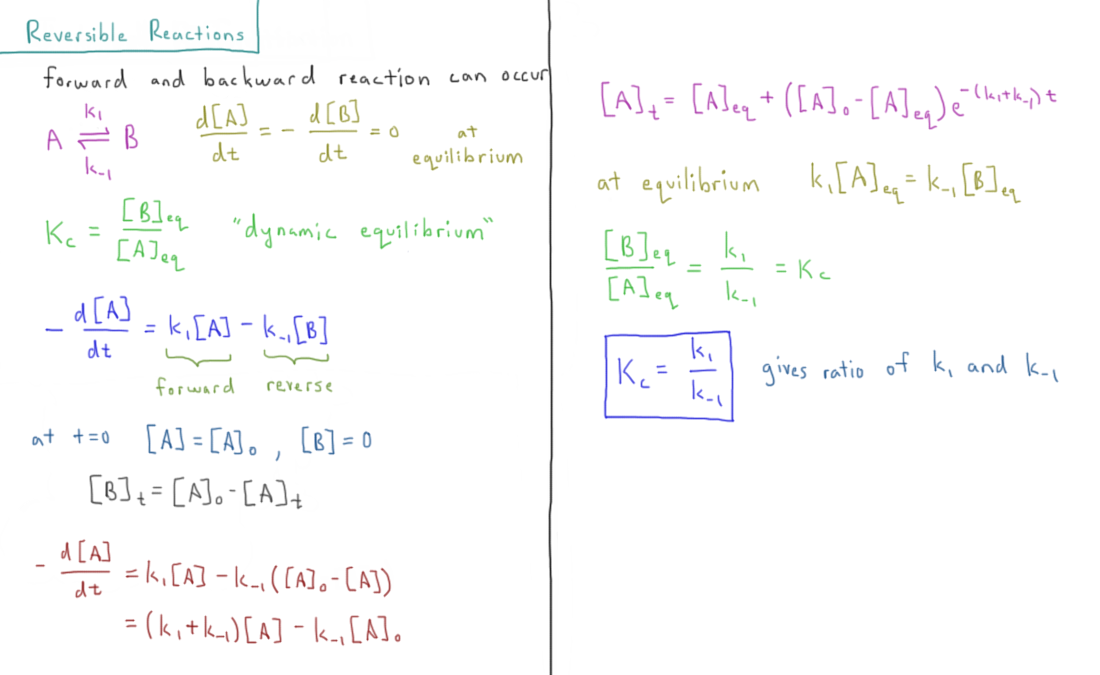 Reversible Reactions
forward and backward reaction can occur
A ⇌ B (k₁ above, k₋₁ below)
d[A]/dt = - d[B]/dt = 0 at equilibrium
K꜀ = [B]eq/[A]eq "dynamic equilibrium"
- d[A]/dt = k₁[A] - k₋₁[B]
forward reverse
at t=0 [A]=[A]₀ , [B]=0
[B]t = [A]₀ - [A]t
- d[A]/dt = k₁[A] - k₋₁([A]₀-[A])
= (k₁+k₋₁)[A] - k₋₁[A]₀
[A]t = [A]eq + ([A]₀-[A]eq)e^-(k₁+k₋₁)t
at equilibrium k₁[A]eq = k₋₁[B]eq
[B]eq/[A]eq = k₁/k₋₁ = K꜀
K꜀ = k₁/k₋₁ gives ratio of k₁ and k₋₁